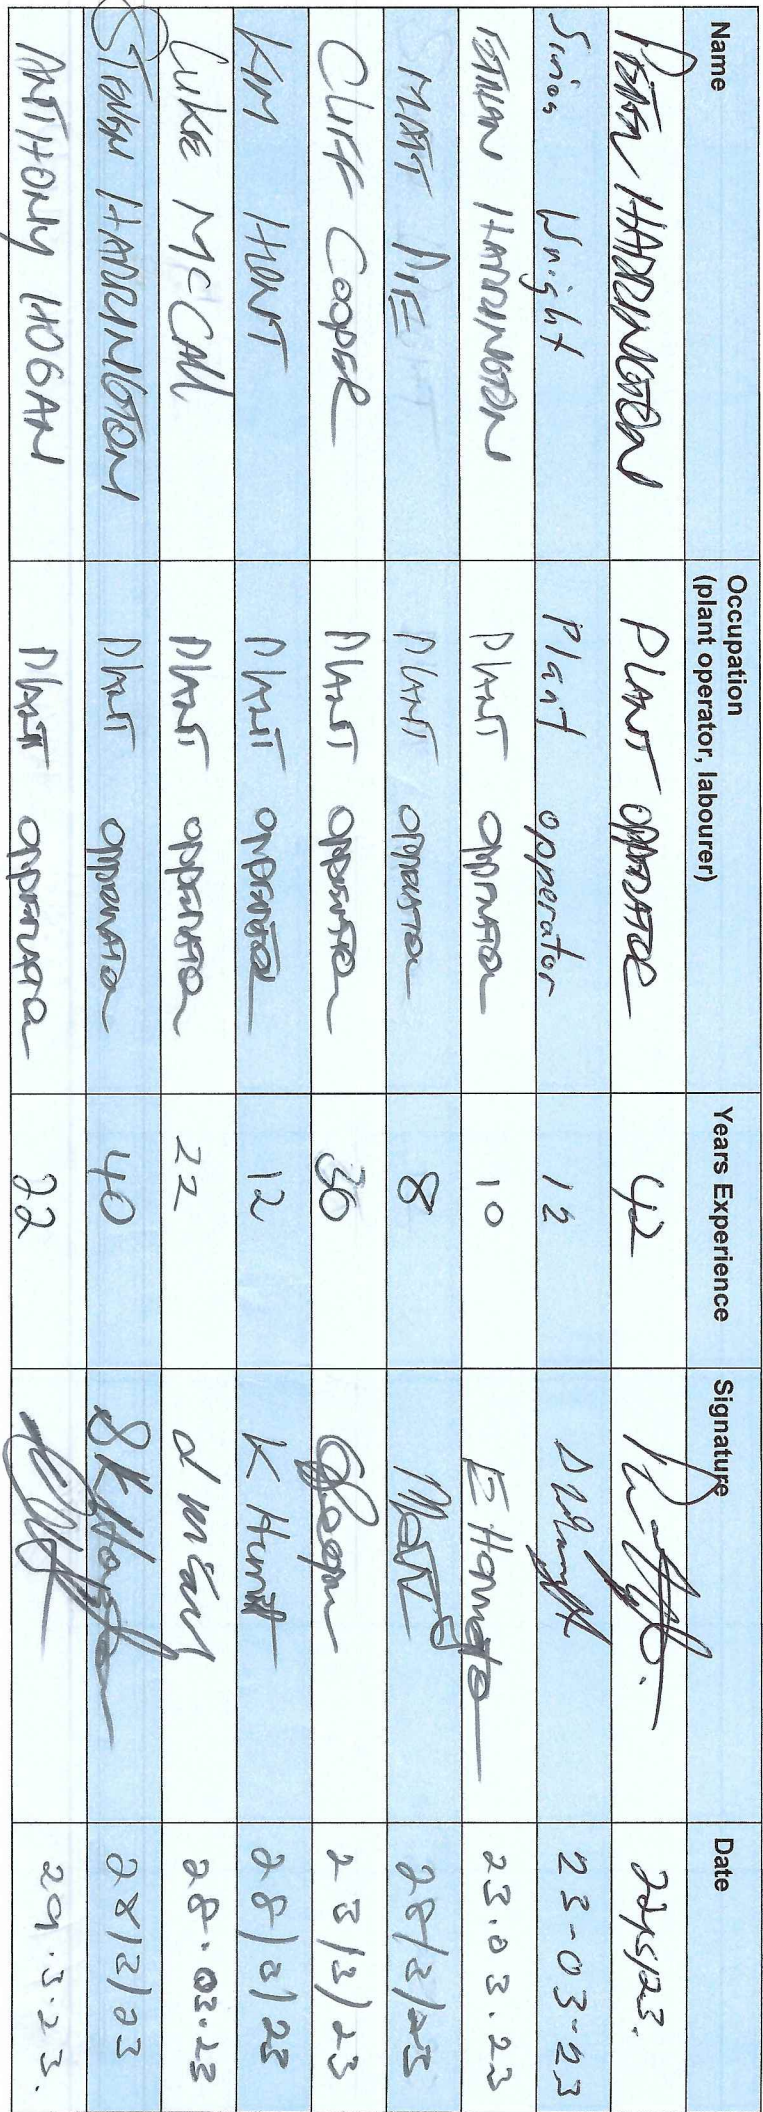 Name Occupation (plant operator, labourer) Years Experience Signature Date
PETER HARRINGTON PLANT OPPERATOR 42
Sirios Wright Plant opperator 12 23-03-23
HARRINGTON PLANT OPPERATOR 10 E Harrington 23.03.23
MATT PLANT OPPERATOR 8 Matt 28/3/23
CLIFF COOPER PLANT OPPERATOR 30 Cooper 28/3/23
KIM HUNT PLANT OPPERATOR 12 K Hunt 28/3/23
LUKE McCALL PLANT OPPERATOR 22 L McCall 28.03.23
STEVEN HARRINGTON PLANT OPPERATOR 40 28/3/23
ANTHONY HOGAN PLANT OPPERATOR 22 29.3.23.